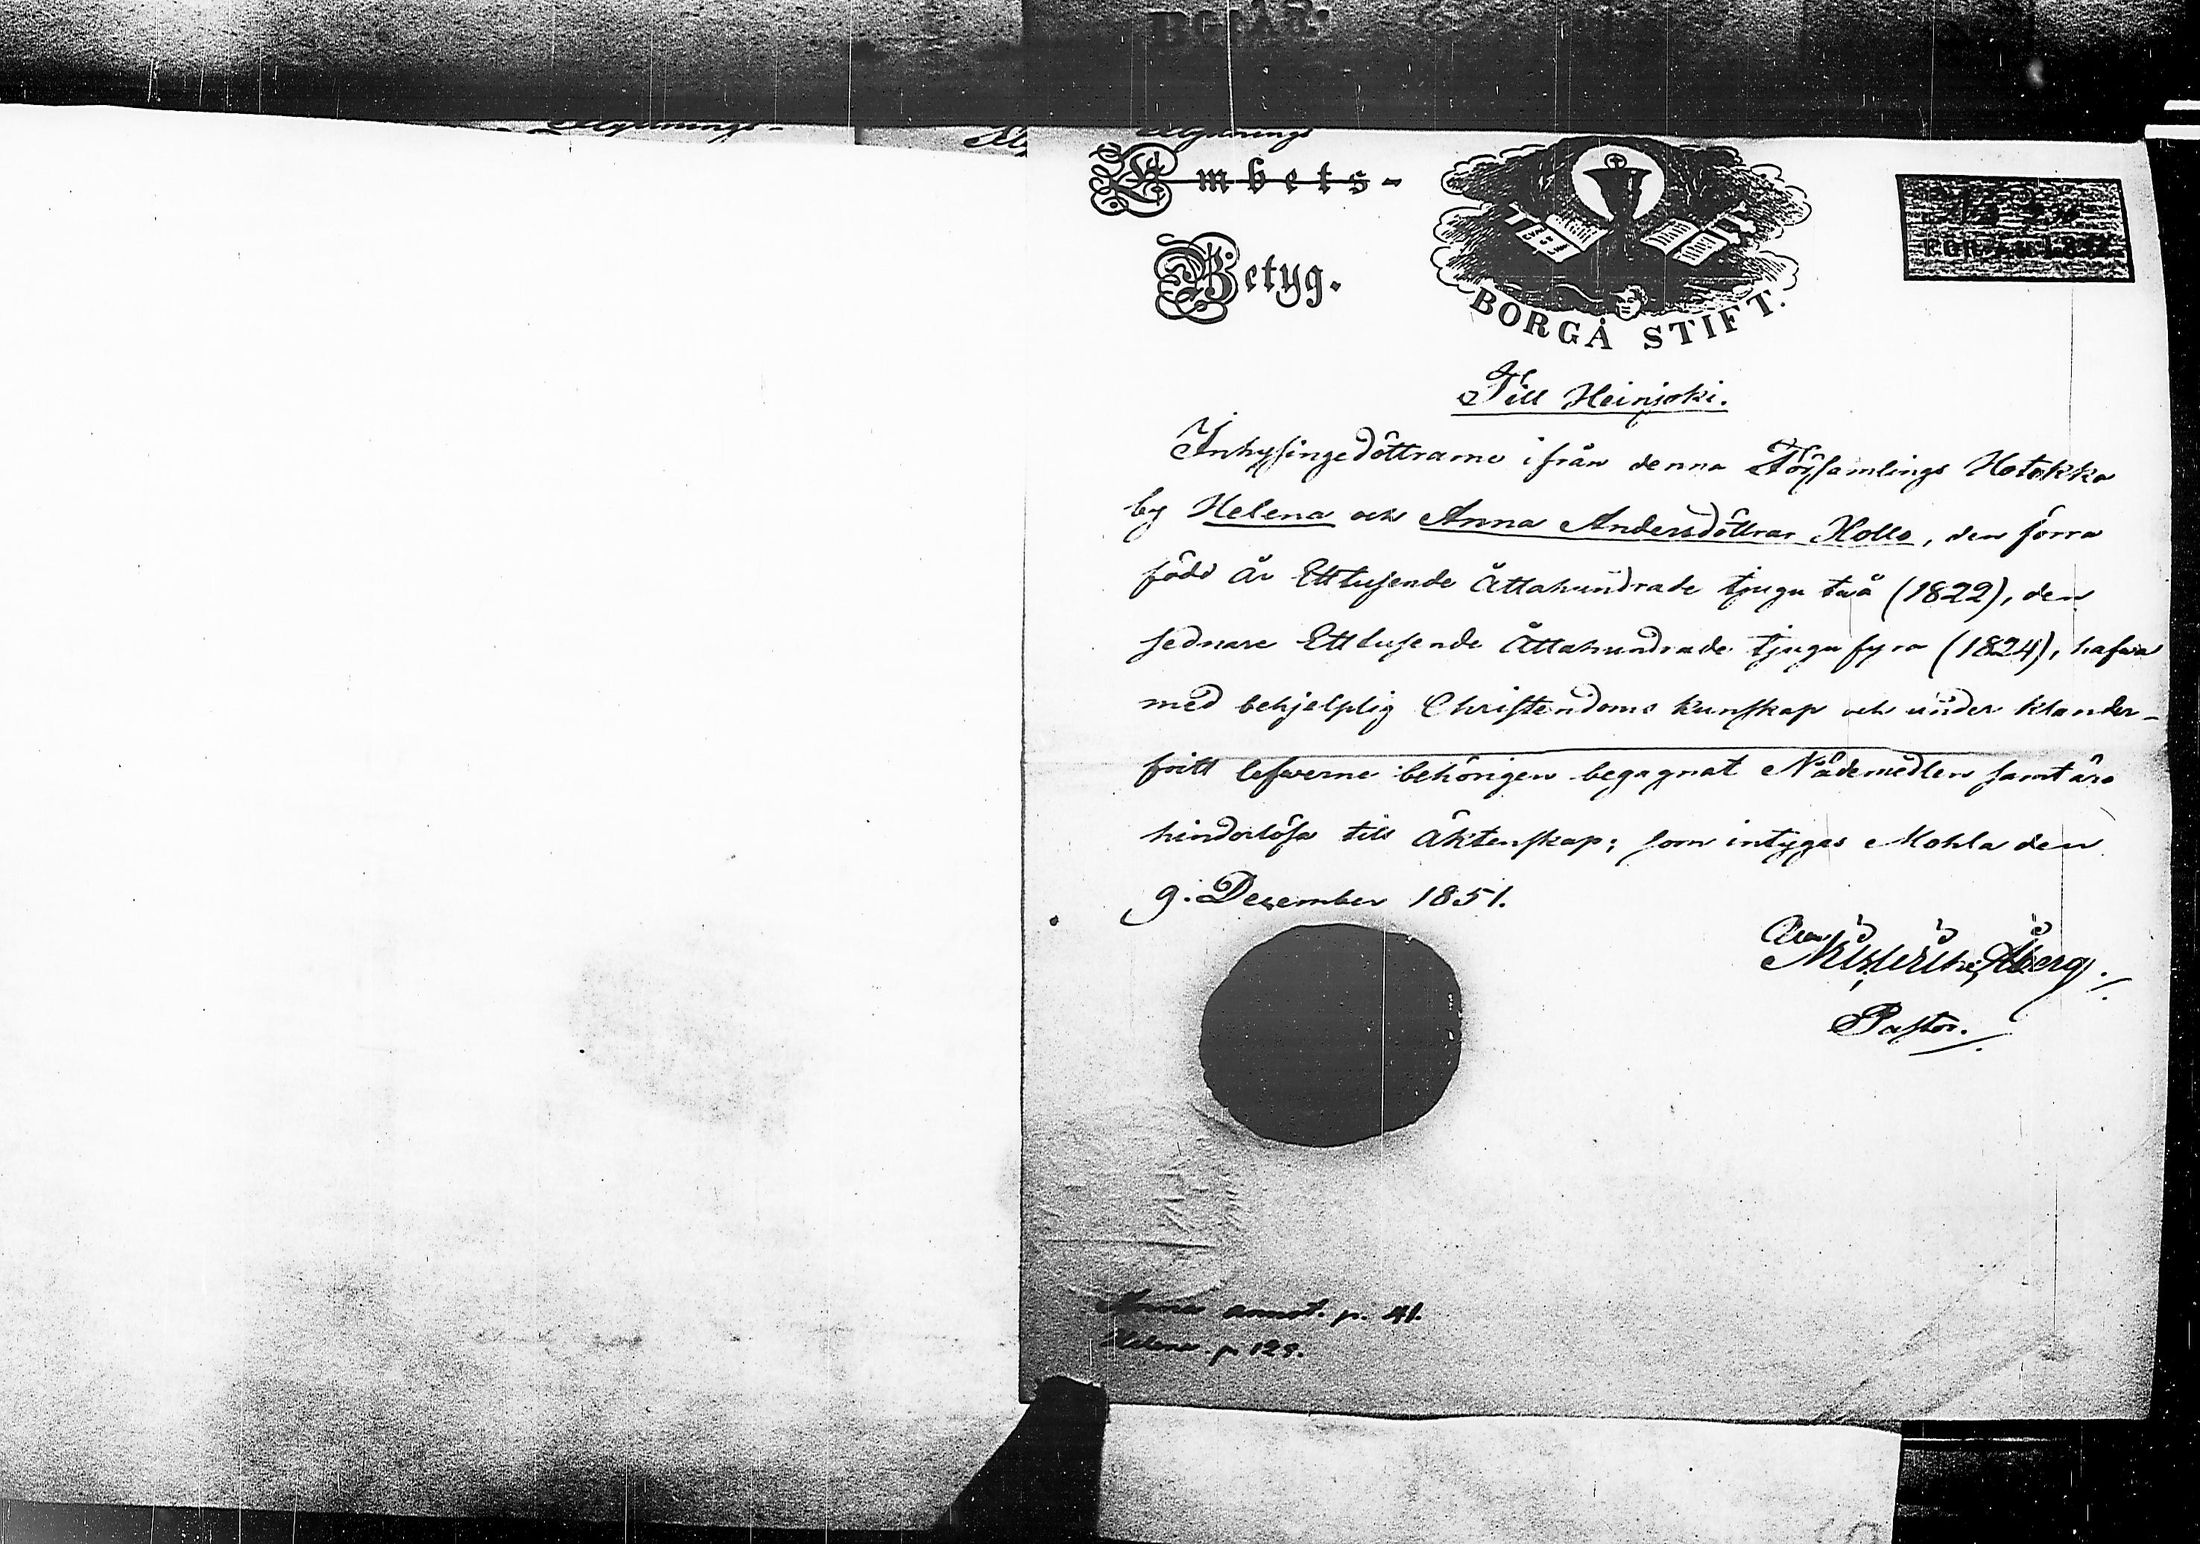 Utgifnings
Embets-
Betyg.
BORGÅ STIFT.
Till Heinjoki.
Inhysingedöttrarne ifrån denna Församlings Hotakka
by Helena och Anna Andersdöttrar Hollo, den förra
född år Ettusende Åttahundrade tjugu två (1822), den
sednare Ettusende Åttahundrade tjugu fyra (1824), hafva
med behjelplig Christendoms kunskap och under klander-
fritt lefverne behörigen begagnat Nådemedlen samt äro
hinderlösa till äktenskap; som intygas Mohla den
9. December 1851.
Åberg.
Pastor.
Anna annot. p. 41.
Helena p 129.